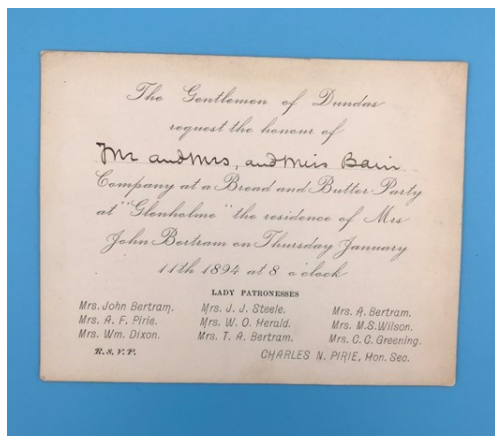 The Gentlemen of Dundas
request the honour of
Mr and Mrs, and Miss Bain
Company at a Bread and Butter Party
at "Glenholme" the residence of Mrs
John Bertram on Thursday January
11th 1894 at 8 o'clock
LADY PATRONESSES
Mrs. John Bertram. Mrs. J. J. Steele. Mrs. A. Bertram.
Mrs. A. F. Pirie. Mrs. W. O. Herald. Mrs. M.S.Wilson.
Mrs. Wm. Dixon. Mrs. T. A. Bertram. Mrs. C. C. Greening.
R.S.V.P. CHARLES N. PIRIE, Hon. Sec.